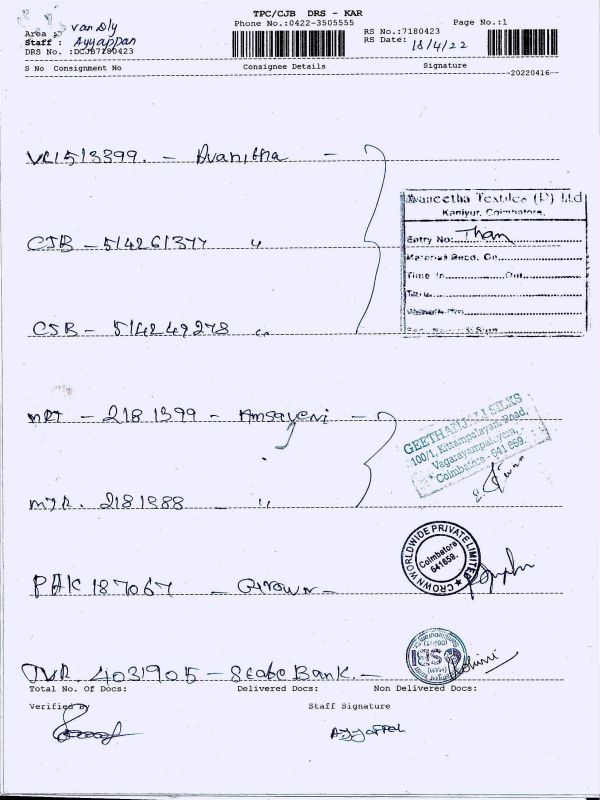 TPC/CJB DRS - KAR
Phone No.:0422-3505555
Page No.:1
Area :
Staff : Ayyappan
DRS No. :DCJB7180423
RS No.:7180423
RS Date: 18/4/22
S No Consignment No Consignee Details Signature
20220416
VR1513399. -
CJB - 514261377 "
CJB - 514249278 "
Textiles (P) Ltd
Kaniyur, Coimbatore,
Entry No: Than
Material Recd. On
Time In Out
MRT - 2181399 -
2181388 - "
GEETHANJALI SILKS
100/1, Kittampalayam Road,
Vagarayampalayam,
Coimbatore - 641 659.
PAK 187067 - Crown -
CROWN WORLDWIDE PRIVATE LIMITED
Coimbatore
641659.
TVR. 4031905 - State Bank. -
Total No. Of Docs: Delivered Docs: Non Delivered Docs:
Verified By Staff Signature